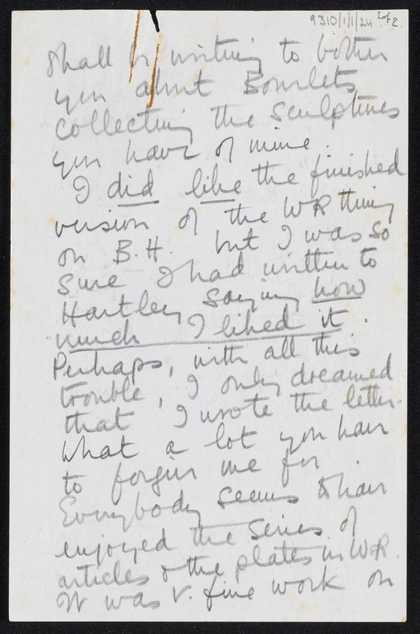 9310/1/1/24 Lf2.
shall be writing to bother
you about Bourlets
collecting the sculptures
you have of mine.
I did like the finished
version of the WR thing
on B.H. but I was so
sure I had written to
Hartley saying how
much I liked it.
Perhaps, with all this
trouble, I only dreamed
that I wrote the letter.
What a lot you have
to forgive me for
Everybody seems to have
enjoyed the series of
articles & the plates in W.R.
It was v. fine work on